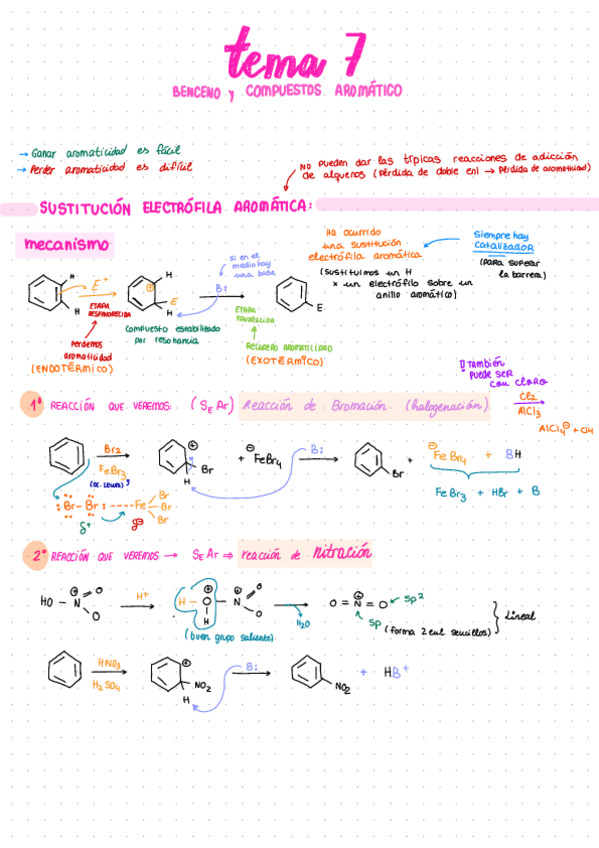 tema 7
BENCENO y COMPUESTOS AROMÁTICO
→ Ganar aromaticidad es fácil
→ Perder aromaticidad es difícil
NO pueden dar las típicas reacciones de adicción
de alquenos (pérdida de doble enl → Pérdida de aromaticidad)
SUSTITUCIÓN ELECTRÓFILA AROMÁTICA:
mecanismo
Ha ocurrido
una sustitución
electrófila aromática
(sustituimos un H
x un electrófilo sobre un
anillo aromático)
Siempre hay
catalizador
(para superar
la barrera)
si en el
medio hay
una base
H
H
E+
ETAPA
DESFAVORECIDA
Perdemos
aromaticidad
(ENDOTÉRMICO)
H
E
H
compuesto estabilizado
por resonancia
B:
ETAPA
FAVORECIDA
RECUPERO AROMATICIDAD
(EXOTÉRMICO)
E
!! También
puede ser
con cloro
Cl2
AlCl3
AlCl4⊖ + ClH
1ª REACCIÓN QUE VEREMOS: (SE Ar) Reacción de Bromación (halogenación)
Br2
FeBr3
(ac. Lewis)
⊕
Br
H
+ ⊖FeBr4
B:
Br
+
⊖FeBr4 + BH
FeBr3 + HBr + B
:Br – Br: ---- Fe
Br
Br
Br
δ+
δ⊖
2º REACCIÓN QUE VEREMOS → SE Ar ⇒ reacción de nitración
HO – N ⊕ O O
H+
H – O – N ⊕ O O
H
(buen grupo saliente)
H2O
O = N = O
⊕
sp2
sp (forma 2 enl sencillos)
Lineal
HNO3
H2SO4
⊕
NO2
H
B:
NO2
+ HB+